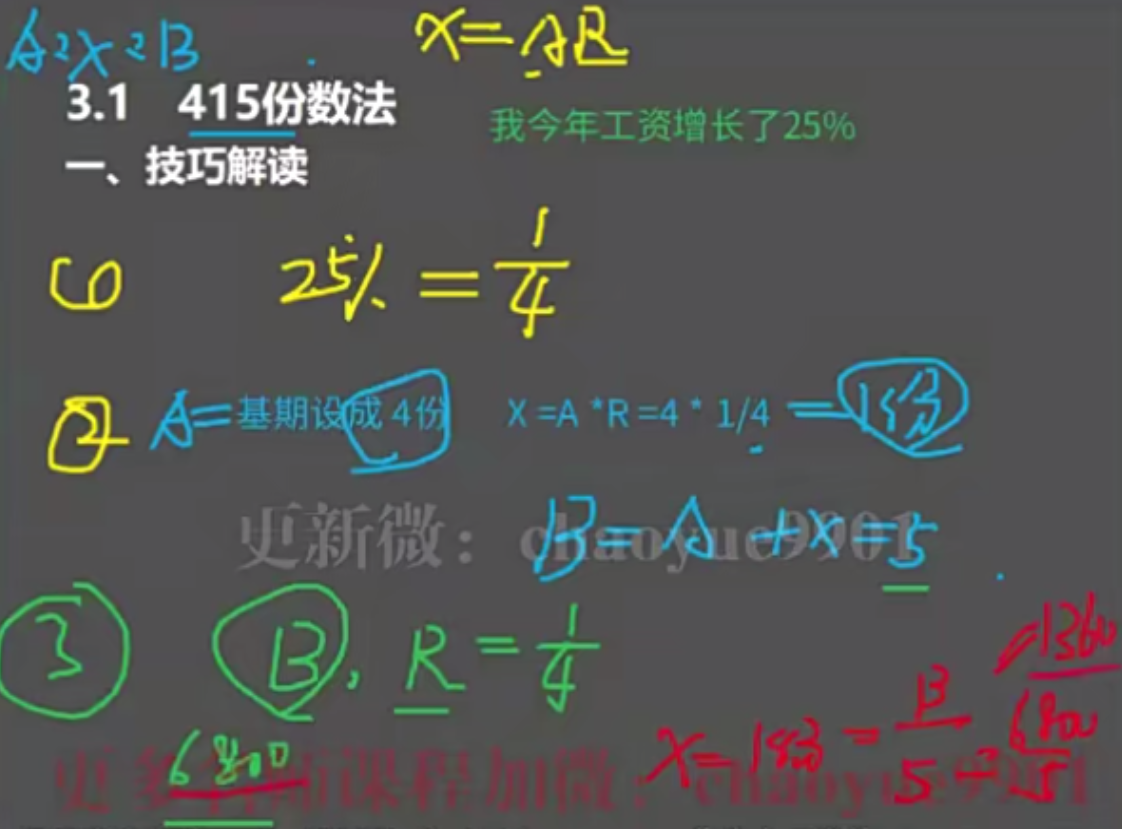 A:X:B
X=AR
3.1 415份数法
我今年工资增长了25%
一、技巧解读
25%=1/4
② A=基期设成 4份 X =A *R =4 * 1/4 =1份
更新微：chaoyue9901
B=A+X=5
③ B, R=1/4
6800
X=1份=B/5=6800/5=1360
课程加微：chaoyue9901